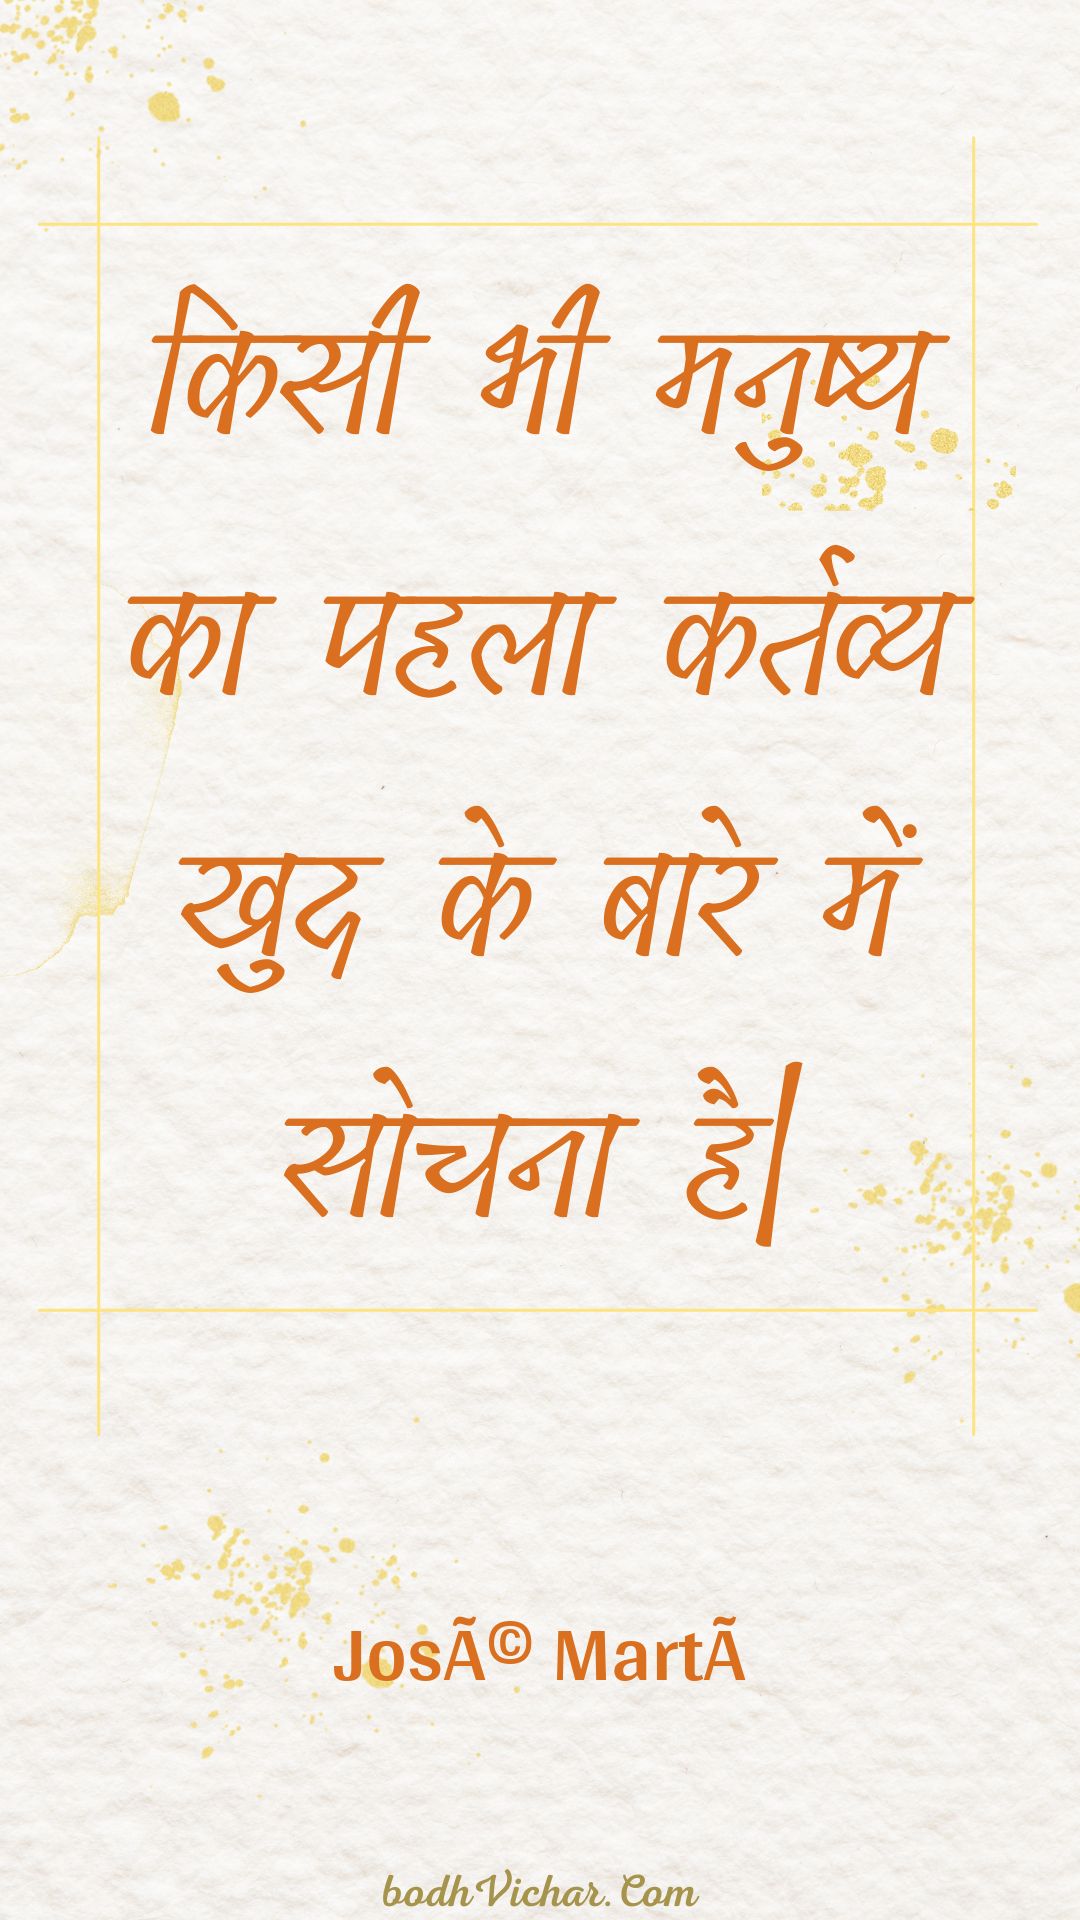 किसी भी मनुष्य
का पहला कर्तव्य
खुद के बारे में
सोचना है|
JosÃ© MartÃ
bodhVichar.Com